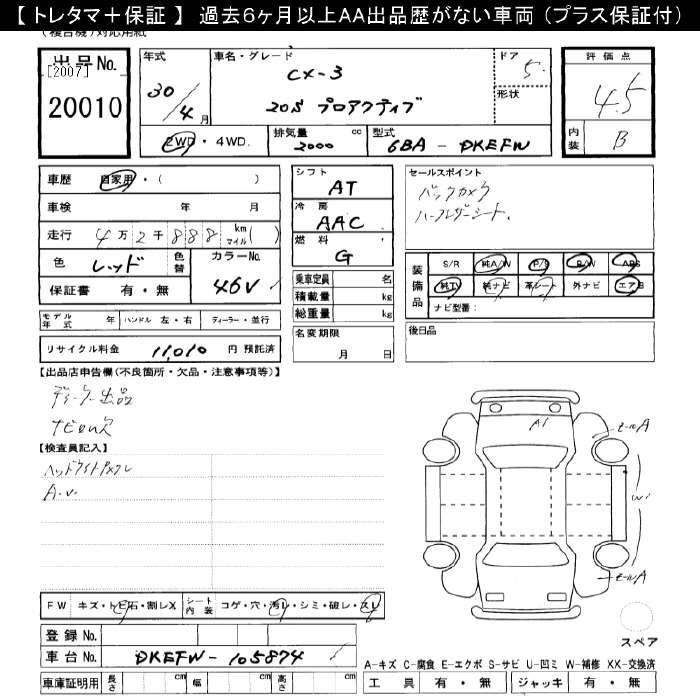 【 トレタマ＋保証 】 過去6ヶ月以上AA出品歴がない車両（プラス保証付）
(複合機)対応用紙
出品No.
[2007]
20010
年式
30/4月
車名・グレード
CX-3
20S プロアクティブ
ドア
5
形状
評価点
4.5
内装
B
2WD・4WD.
排気量 2000 cc
型式 6BA - DKEFW
車歴 自家用・( )
車検 年 月
走行 4万2千888 km マイル( )
色 レッド 色替 カラーNo. 46V
保証書 有・無
モデル年式 年 ハンドル 左・右 ディーラー・並行
リサイクル料金 11,010 円 預託済
シフト AT
冷房 AAC
燃料 G
乗車定員 名
積載量 kg
総重量 kg
名変期限
月 日
セールスポイント
バックカメラ
ハーフレザーシート.
装備品
S/R 純A/W P/S P/W ABS
純TV 純ナビ 革シート 外ナビ エアB
ナビ型番:
後日品
【出品店申告欄(不良箇所・欠品・注意事項等)】
ディーラー出品
ナビROM欠
【検査員記入】
A.W.
A1
W1
FW キズ・トビ石・割レX シート内装 コゲ・穴・汚レ・シミ・破レ・スレ
登録No.
車台No. DKEFW-105874
車庫証明用 長さ cm 幅 cm 高さ cm
スペア
A-キズ C-腐食 E-エクボ S-サビ U-凹ミ W-補修 XX-交換済
工具 有・無 ジャッキ 有・無